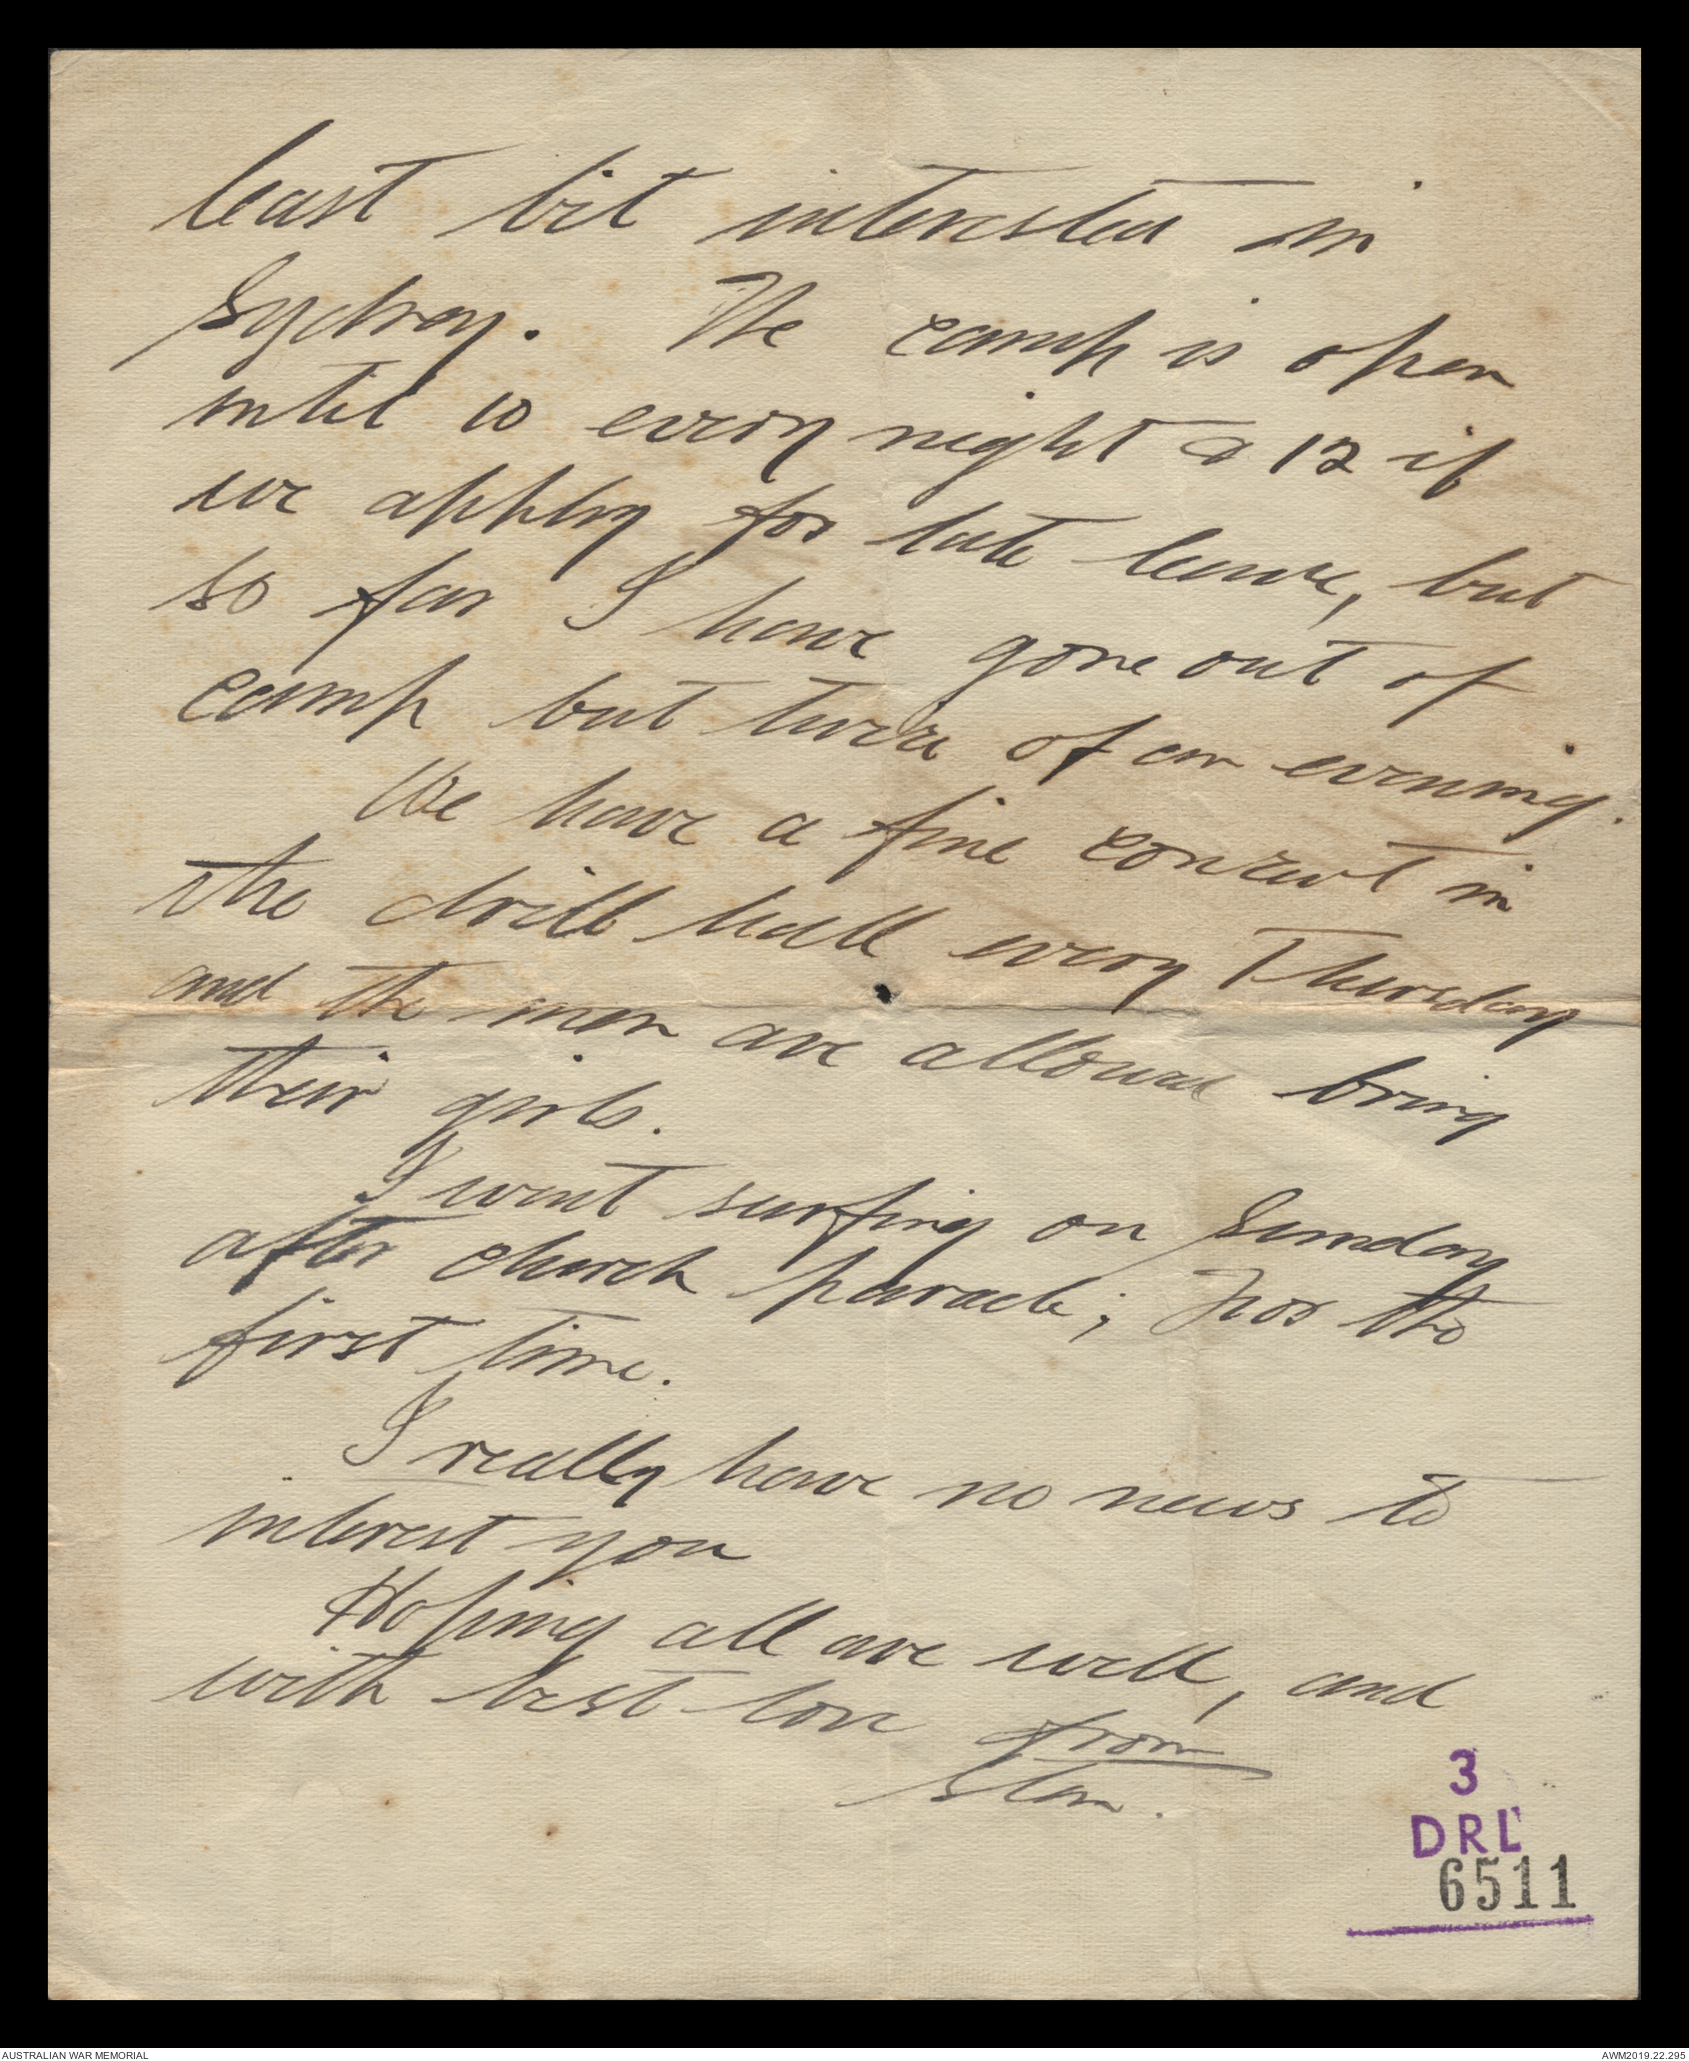 least bit interested in
Sydney. The camp is open
until 10 every night & 12 if
we apply for late leave, but
so far I have gone out of
camp but twice of an evening.
We have a fine concert in
the drill hall every Thursday
and the men are allowed bring
their girls.
I went surfing on Sunday
after church parade; for the
first time.
I really have no news to
interest you
Hoping all are well, and
with best love from
Stan.
3
DRL
6511
AUSTRALIAN WAR MEMORIAL
AWM2019.22.295